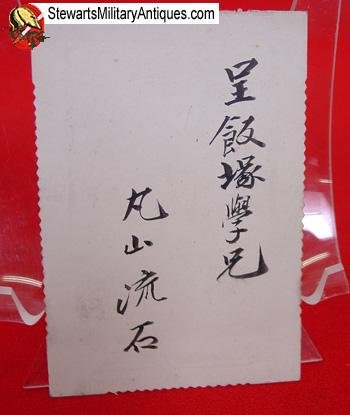 StewartsMilitaryAntiques.com
呈飯塚學兄
丸山流石